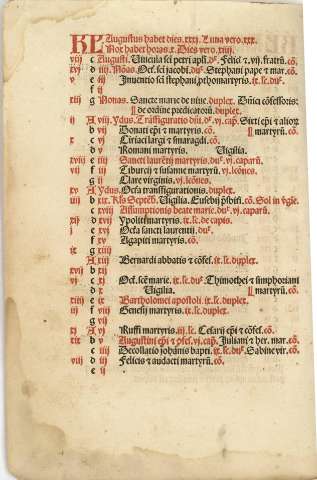 KL Augustus habet dies.xxxj. Luna vero.xxx.
Nox habet horas.x. Dies vero.xiiij.
viij c Augusti. Vincula sci petri apli.du⁰. Felicis et .vij. fratrū. cō.
xvj d iiij Nōas. Oct. sci jacobi.du⁰. Stephani pape et mar.cō.
v e iij Inventio sci stephani,pthomartyris.ix.lc.du⁰.
f ij
xiij g Nonas. Sancte marie de nive.duplex. Dñici cōfessoris:
de ordine predicatorū.duplex.
ij A viij Ydus. Trāsfiguratio dñi.du⁰.vj.cap̄. Sixti ep̄i et alioꝝ
b vij Donati ep̄i et martyris.cō. martyrū.cō.
x c vj Ciriaci largi et smaragdi.cō.
d v Romani martyris. Vigilia.
xviij e iiij Sancti laurētij martyris.du⁰.vj.caparū.
vij f iij Tiburcij et susanne martyrū.vj.lcōnes.
g ij Clare virginis.vj.lcōnes.
xv A Ydus. Octa transfigurationis.duplex.
iiij b xix. Kls Septēb. Vigilia. Eusebij p̄sbiti.cō. Sol in v̄gie.
c xviij Assumptionis beate marie.du⁰.vj.caparū.
xij d xvij Ypoliti martyris.ix.lc.de capis.
j e xvj Octa sancti laurentij.du⁰.
f xv Agapiti martyris.cō.
ix g xiiij
A xiij Bernardi abbatis et cōfes.ix.lc.duplex.
xvij b xij
vj c xj Oct. scē marie.ix.lc.du⁰. Thimothei et simphoriani
d x Vigilia. martyrū.cō.
xiiij e ix Bartholomei apostoli.ix.lc.duplex.
iij f viij Genesij martyris.ix.lc.duplex.
g vij
xj A vj Ruffi martyris.iij.lc. Cesarij ep̄i et cōfes.cō.
xix b v Augustini ep̄i et cōfes.vj.cap̄. Juliani et her.mar.cō.
c iiij Decollatio johānis bapti.ix.lc.du⁰. Sabine vir.cō.
viij d iij Felicis et audacti martyrū.cō.
e ij